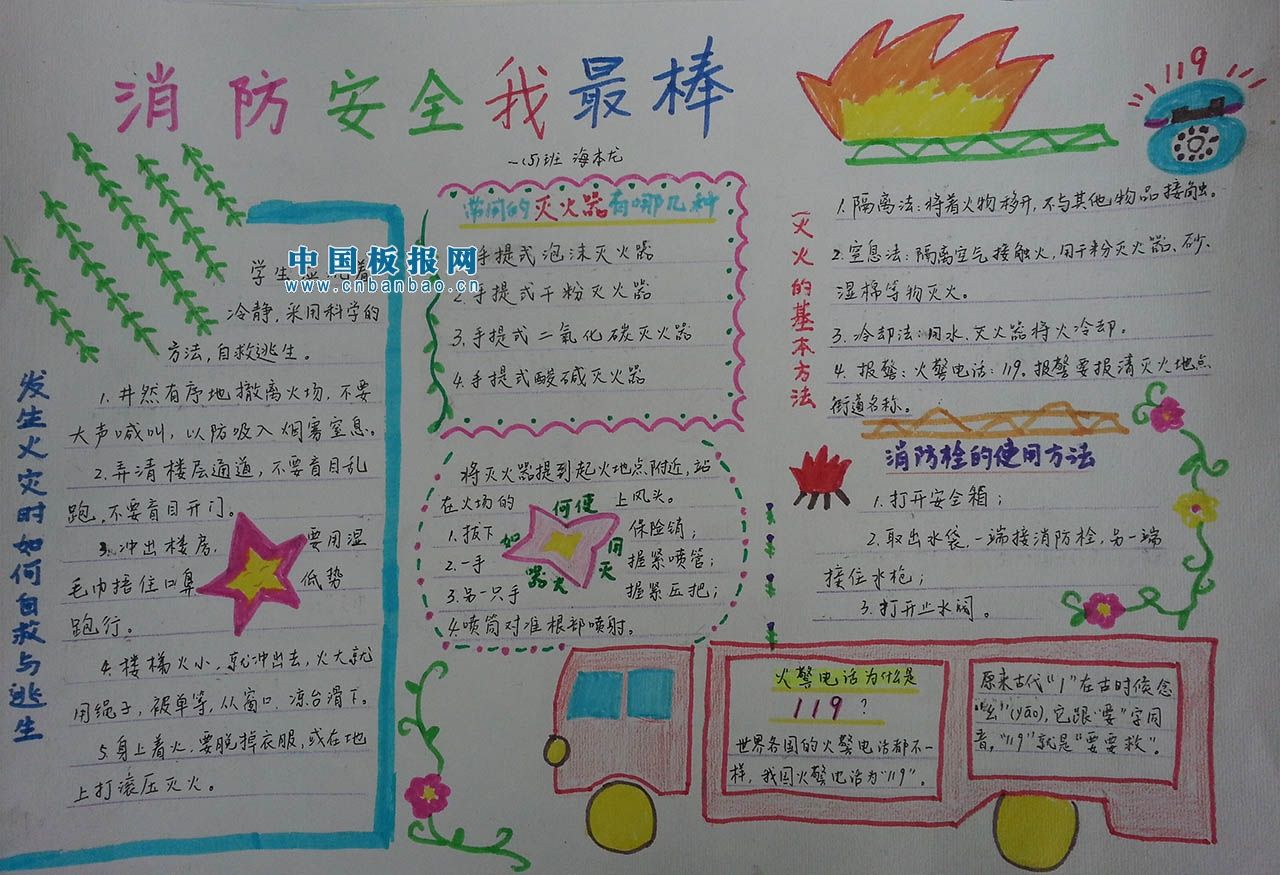 消防安全我最棒
一(5)班 海本龙
119
中国板报网
www.cnbanbao.cn
发生火灾时如何自救与逃生
学生
冷静，采用科学的
方法，自救逃生。
1. 井然有序地撤离火场，不要
大声喊叫，以防吸入烟雾窒息。
2. 弄清楼层通道，不要盲目乱
跑，不要盲目开门。
3. 冲出楼房，要用湿
毛巾捂住口鼻 低势
跑行。
4. 楼梯火小，就冲出去，火大就
用绳子，被单等，从窗口，凉台滑下。
5. 身上着火，要脱掉衣服，或在地
上打滚压灭火。
常间的灭火器有哪几种
手提式泡沫灭火器
2. 手提式干粉灭火器
3. 手提式二氧化碳灭火器
4. 手提式酸碱灭火器
如何使用灭火器
将灭火器提到起火地点附近，站
在火场的 上风头。
1. 拔下 保险销；
2. 一手 握紧喷管；
3. 另一只手 握紧压把；
4. 喷筒对准根部喷射。
灭火的基本方法
1. 隔离法：将着火物移开，不与其他物品接触。
2. 窒息法：隔离空气接触火，用干粉灭火器、砂、
湿棉等物灭火。
3. 冷却法：用水、灭火器将火冷却。
4. 报警：火警电话：119，报警要报清灭火地点
街道名称。
消防栓的使用方法
1. 打开安全箱；
2. 取出水袋，一端接消防栓，另一端
接住水枪；
3. 打开止水阀。
火警电话为什么是
119？
世界各国的火警电话都不一
样，我国火警电话为"119"。
原来古代"1"在古时候念
"幺"(yāo)，它跟"要"字同
音，"119"就是"要要救"。